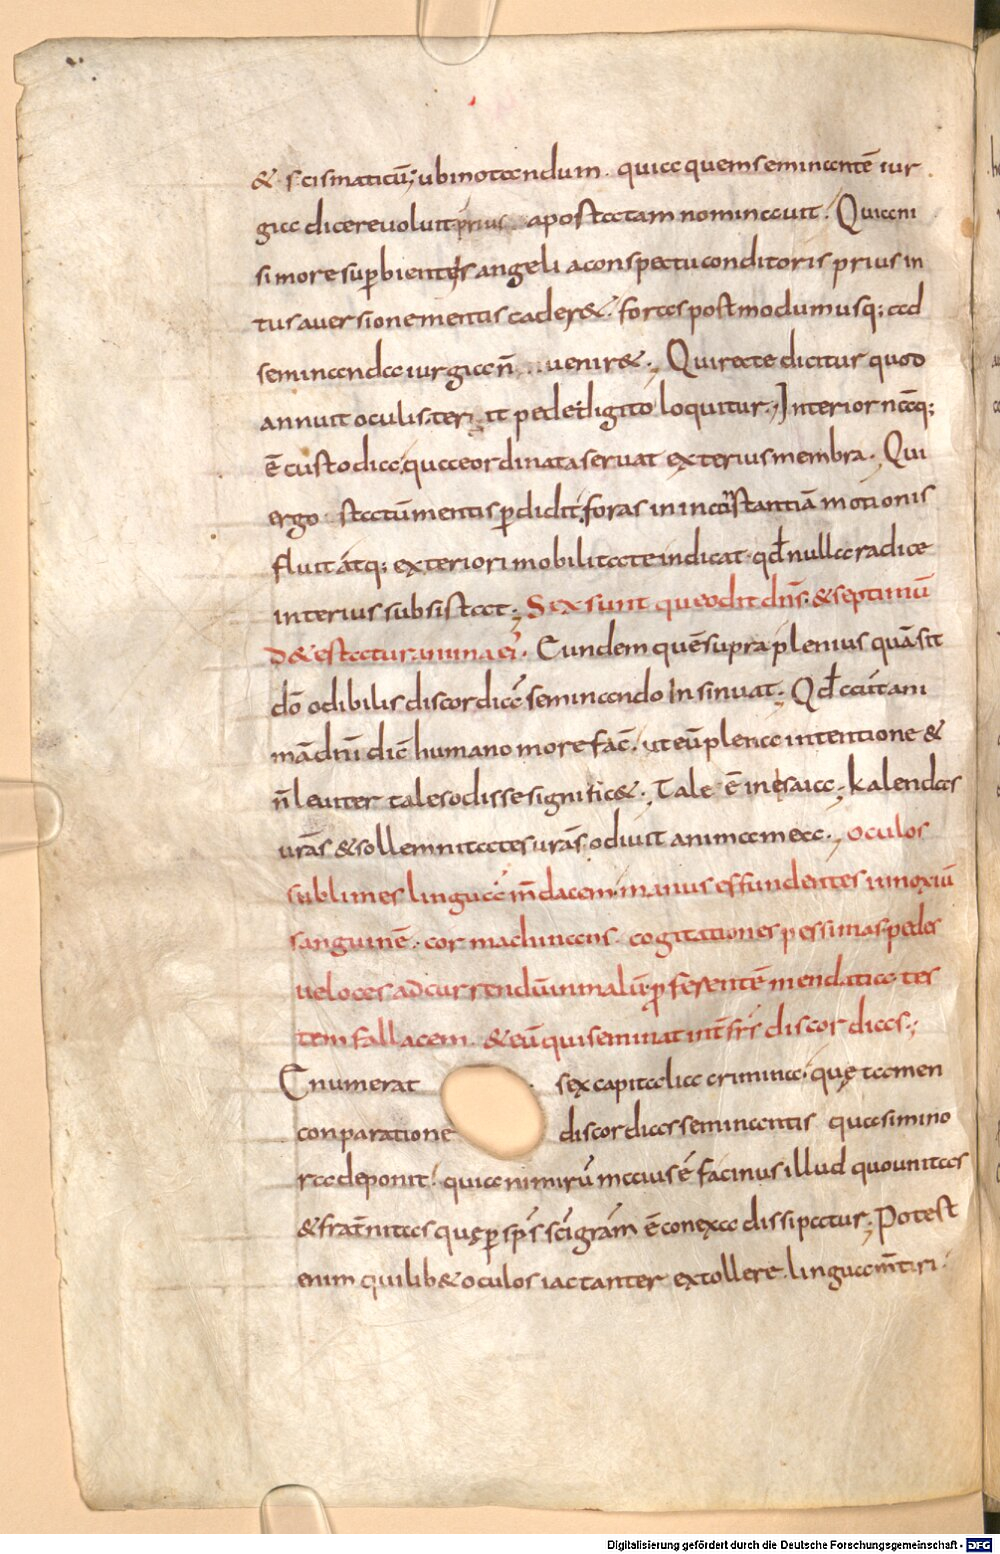 & scismaticū; ubi notandum · quia quem seminantē iur
gia dicere uoluit prius apostatam nominauit · Quia ni
si more sup̄bientis angeli a conspectu conditoris prius in
tus auersione mentis cader& · foras postmodum usq; ad
seminanda iurgia n̄ uenir& · Qui recte dicitur quod
annuit oculis · terit pede · digito loquitur · Interior nāq;
ē custodia, quae ordinata seruat exterius membra · Qui
ergo statū mentis p̄didit, foras in inconstantiā motionis
fluit atq; exteriori mobilitate indicat · qđ nulla radice
interius subsistat · Sex sunt que odit dn̄s · & septimū
d&estatur anima ei · Eundem quē supra plenius quā sit
dō odibilis discordiā seminando insinuat · Qđ autani
mā dn̄i dic̄ humano more fac̄ · ut eū plena intentione &
n̄ leuiter tales odisse signific& · Tale ē in esaia · kalendas
ur̄as & sollemnitates ur̄as odiuit anima mea · Oculos
sublimes lingua m̄dacem · manus effundentes innoxiū
sanguinē · cor machinans cogitationes pessimas pedes
ueloces ad currendū in malū · p̄ferentē mendatia · tes
tem fallacem · & eū qui seminat int̄ fr̄s discordias ·
Enumerat sex capitalia crimina · quę tamen
conparatione discordias seminantis quasi mino
ra deponit · quia nimirū maius ē facinus illud quo unitas
& frat̄nitas quę p̄ sp̄s sc̄i grām̄ ē conexa dissipatur · Potest
enim quilib& oculos iactanter extollere · lingua m̄tiri ·
Digitalisierung gefördert durch die Deutsche Forschungsgemeinschaft - DFG